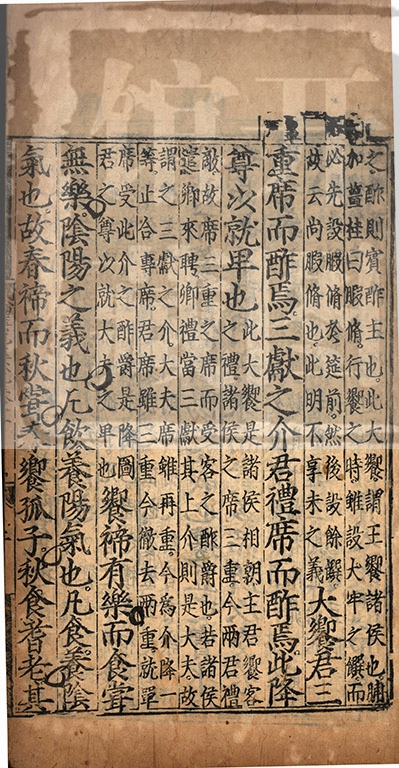 之酢則賓酢主也此大饗謂王饗諸侯也脯
加薑桂曰腶脩行饗之時雖設大牢之饌而
必先設腶脩於筵前然後設餘饌
故云尚腶脩也此明不享味之義
大饗君三
重席而酢焉三獻之介君禮席而酢焉此降
尊次就卑也
此大饗是諸侯相朝主君饗客
之禮諸侯之席三重今兩君禮
敵故席三重之席而受客之酢爵也若諸侯
遣卿來聘卿禮當三獻其上介則是大夫故
謂之三獻之介大夫席雖再重今為介降一
等止合專席君席雖三重今徹去兩重就單
席受此介之酢爵是降國
君之尊次就大夫之卑也
饗禘有樂而食嘗
無樂陰陽之義也凡飲養陽氣也凡食養陰
氣也故春禘而秋嘗春饗孤子秋食耆老其